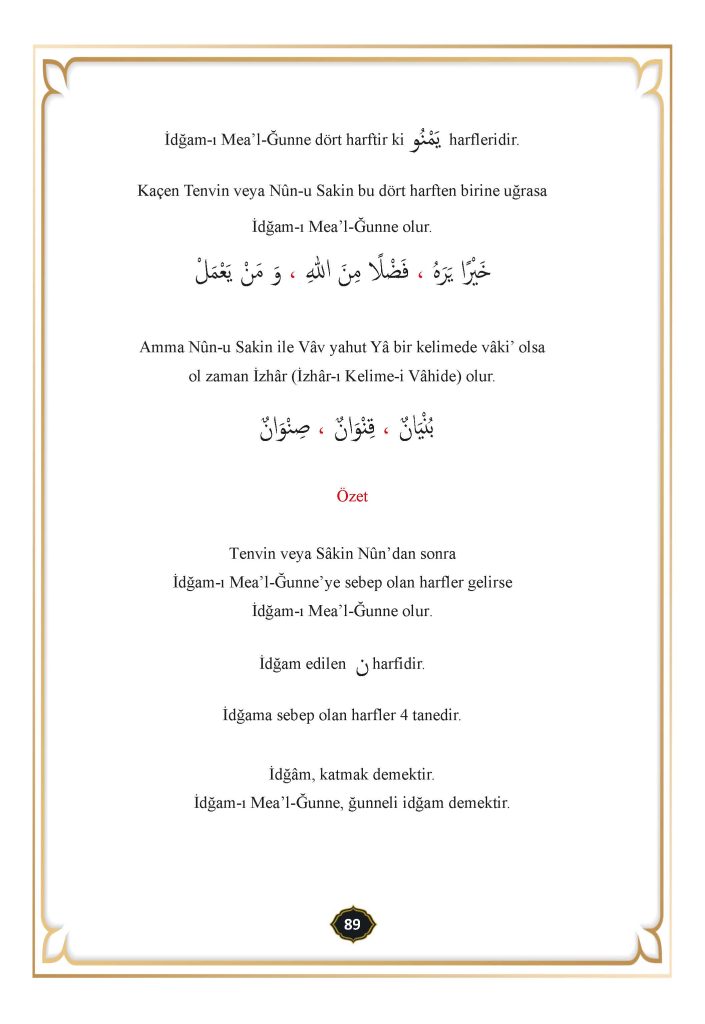 İdğam-ı Mea’l-Ğunne dört harftir ki يَمْنُو harfleridir.
Kaçen Tenvin veya Nûn-u Sakin bu dört harften birine uğrasa
İdğam-ı Mea’l-Ğunne olur.
خَيْرًا يَرَهُ ، فَضْلًا مِنَ اللّٰهِ ، وَ مَنْ يَعْمَلْ
Amma Nûn-u Sakin ile Vâv yahut Yâ bir kelimede vâki’ olsa
ol zaman İzhâr (İzhâr-ı Kelime-i Vâhide) olur.
بُنْيَانٌ ، قِنْوَانٌ ، صِنْوَانٌ
Özet
Tenvin veya Sâkin Nûn’dan sonra
İdğam-ı Mea’l-Ğunne’ye sebep olan harfler gelirse
İdğam-ı Mea’l-Ğunne olur.
İdğam edilen ن harfidir.
İdğama sebep olan harfler 4 tanedir.
İdğâm, katmak demektir.
İdğam-ı Mea’l-Ğunne, ğunneli idğam demektir.
89